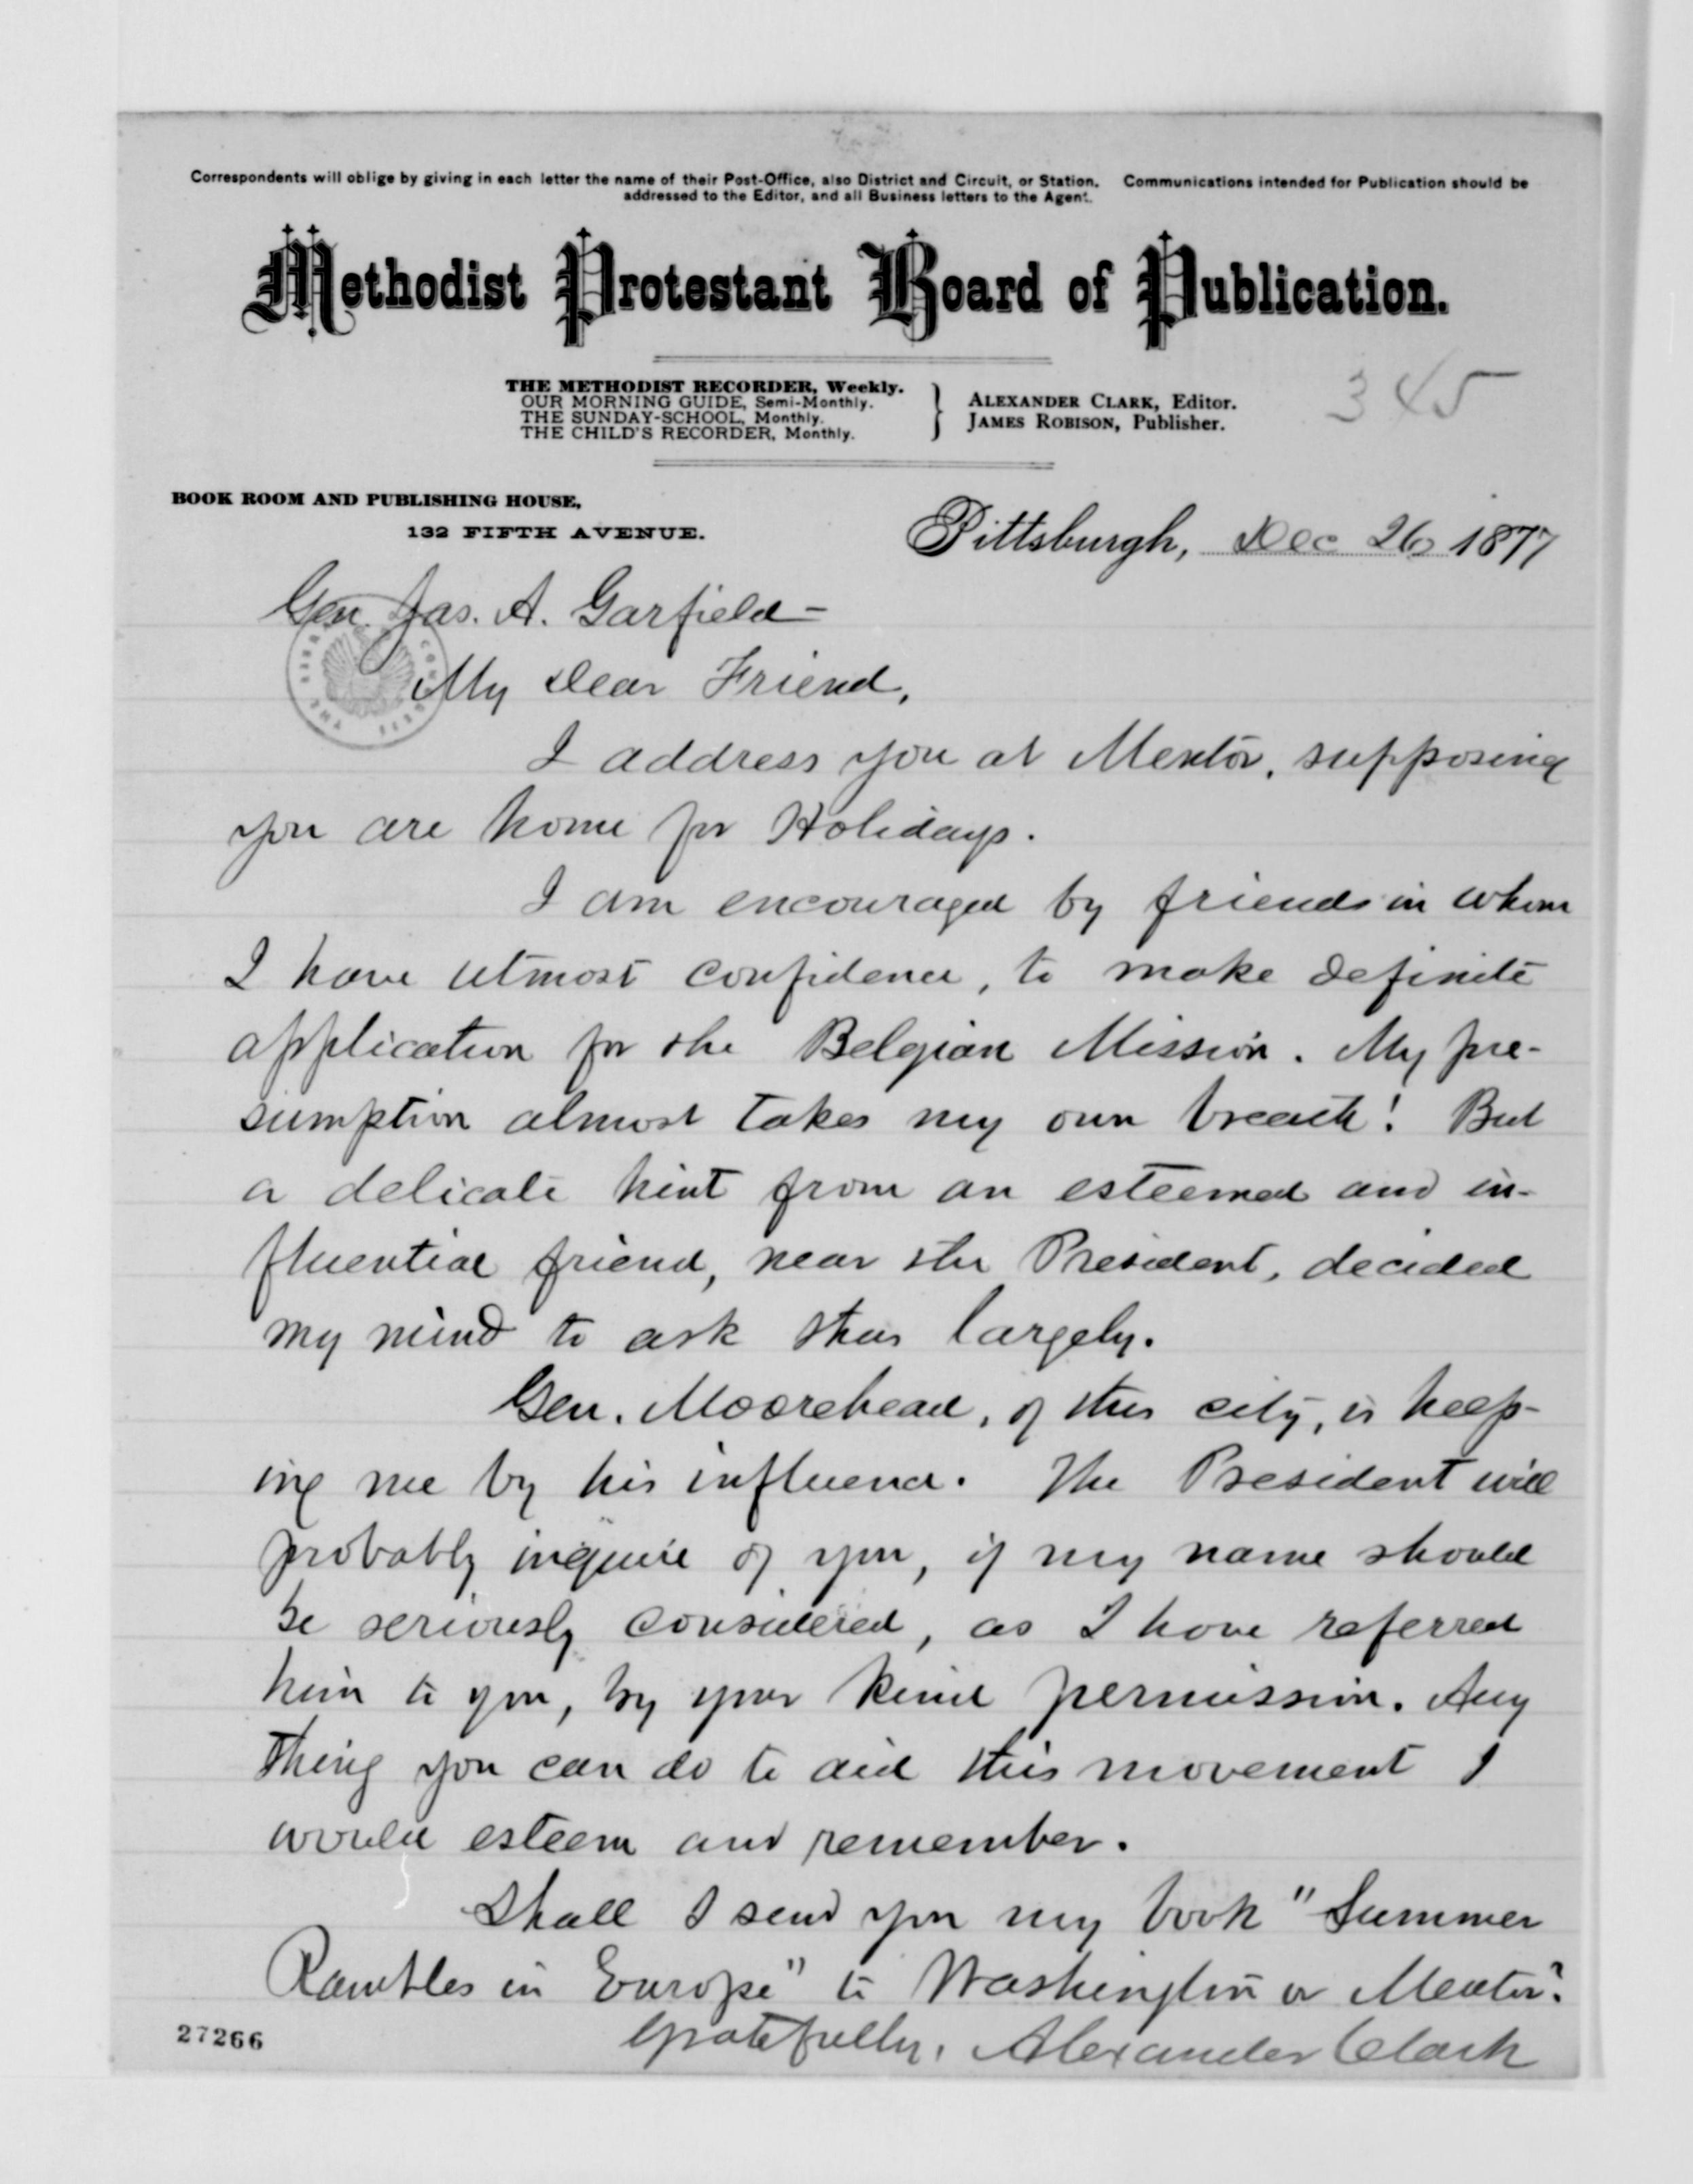 Correspondents will oblige by giving in each letter the name of their Post-Office, also District and Circuit, or Station. Communications intended for Publication should be
addressed to the Editor, and all Business letters to the Agent.
Methodist Protestant Board of Publication.
THE METHODIST RECORDER, Weekly.
OUR MORNING GUIDE, Semi-Monthly.
THE SUNDAY-SCHOOL, Monthly.
THE CHILD'S RECORDER, Monthly.
ALEXANDER CLARK, Editor.
JAMES ROBISON, Publisher.
345
BOOK ROOM AND PUBLISHING HOUSE,
132 FIFTH AVENUE.
Pittsburgh, Dec 26 1877
Gen. Jas. A. Garfield—
My Dear Friend,
I address you at Mentor, supposing
you are home for Holidays.
I am encouraged by friends in whom
I have utmost confidence, to make definite
application for the Belgian Mission. My pre-
sumption almost takes my own breath! But
a delicate hint from an esteemed and in-
fluential friend, near the President, decided
my mind to ask thus largely.
Gen. Moorehead, of this city, is help-
ing me by his influence. The President will
probably inquire of you, if my name should
be seriously considered, as I have referred
him to you, by your kind permission. Any
thing you can do to aid this movement I
would esteem and remember.
Shall I send you my book "Summer
Rambles in Europe" to Washington or Mentor?
Gratefully, Alexander Clark
27266